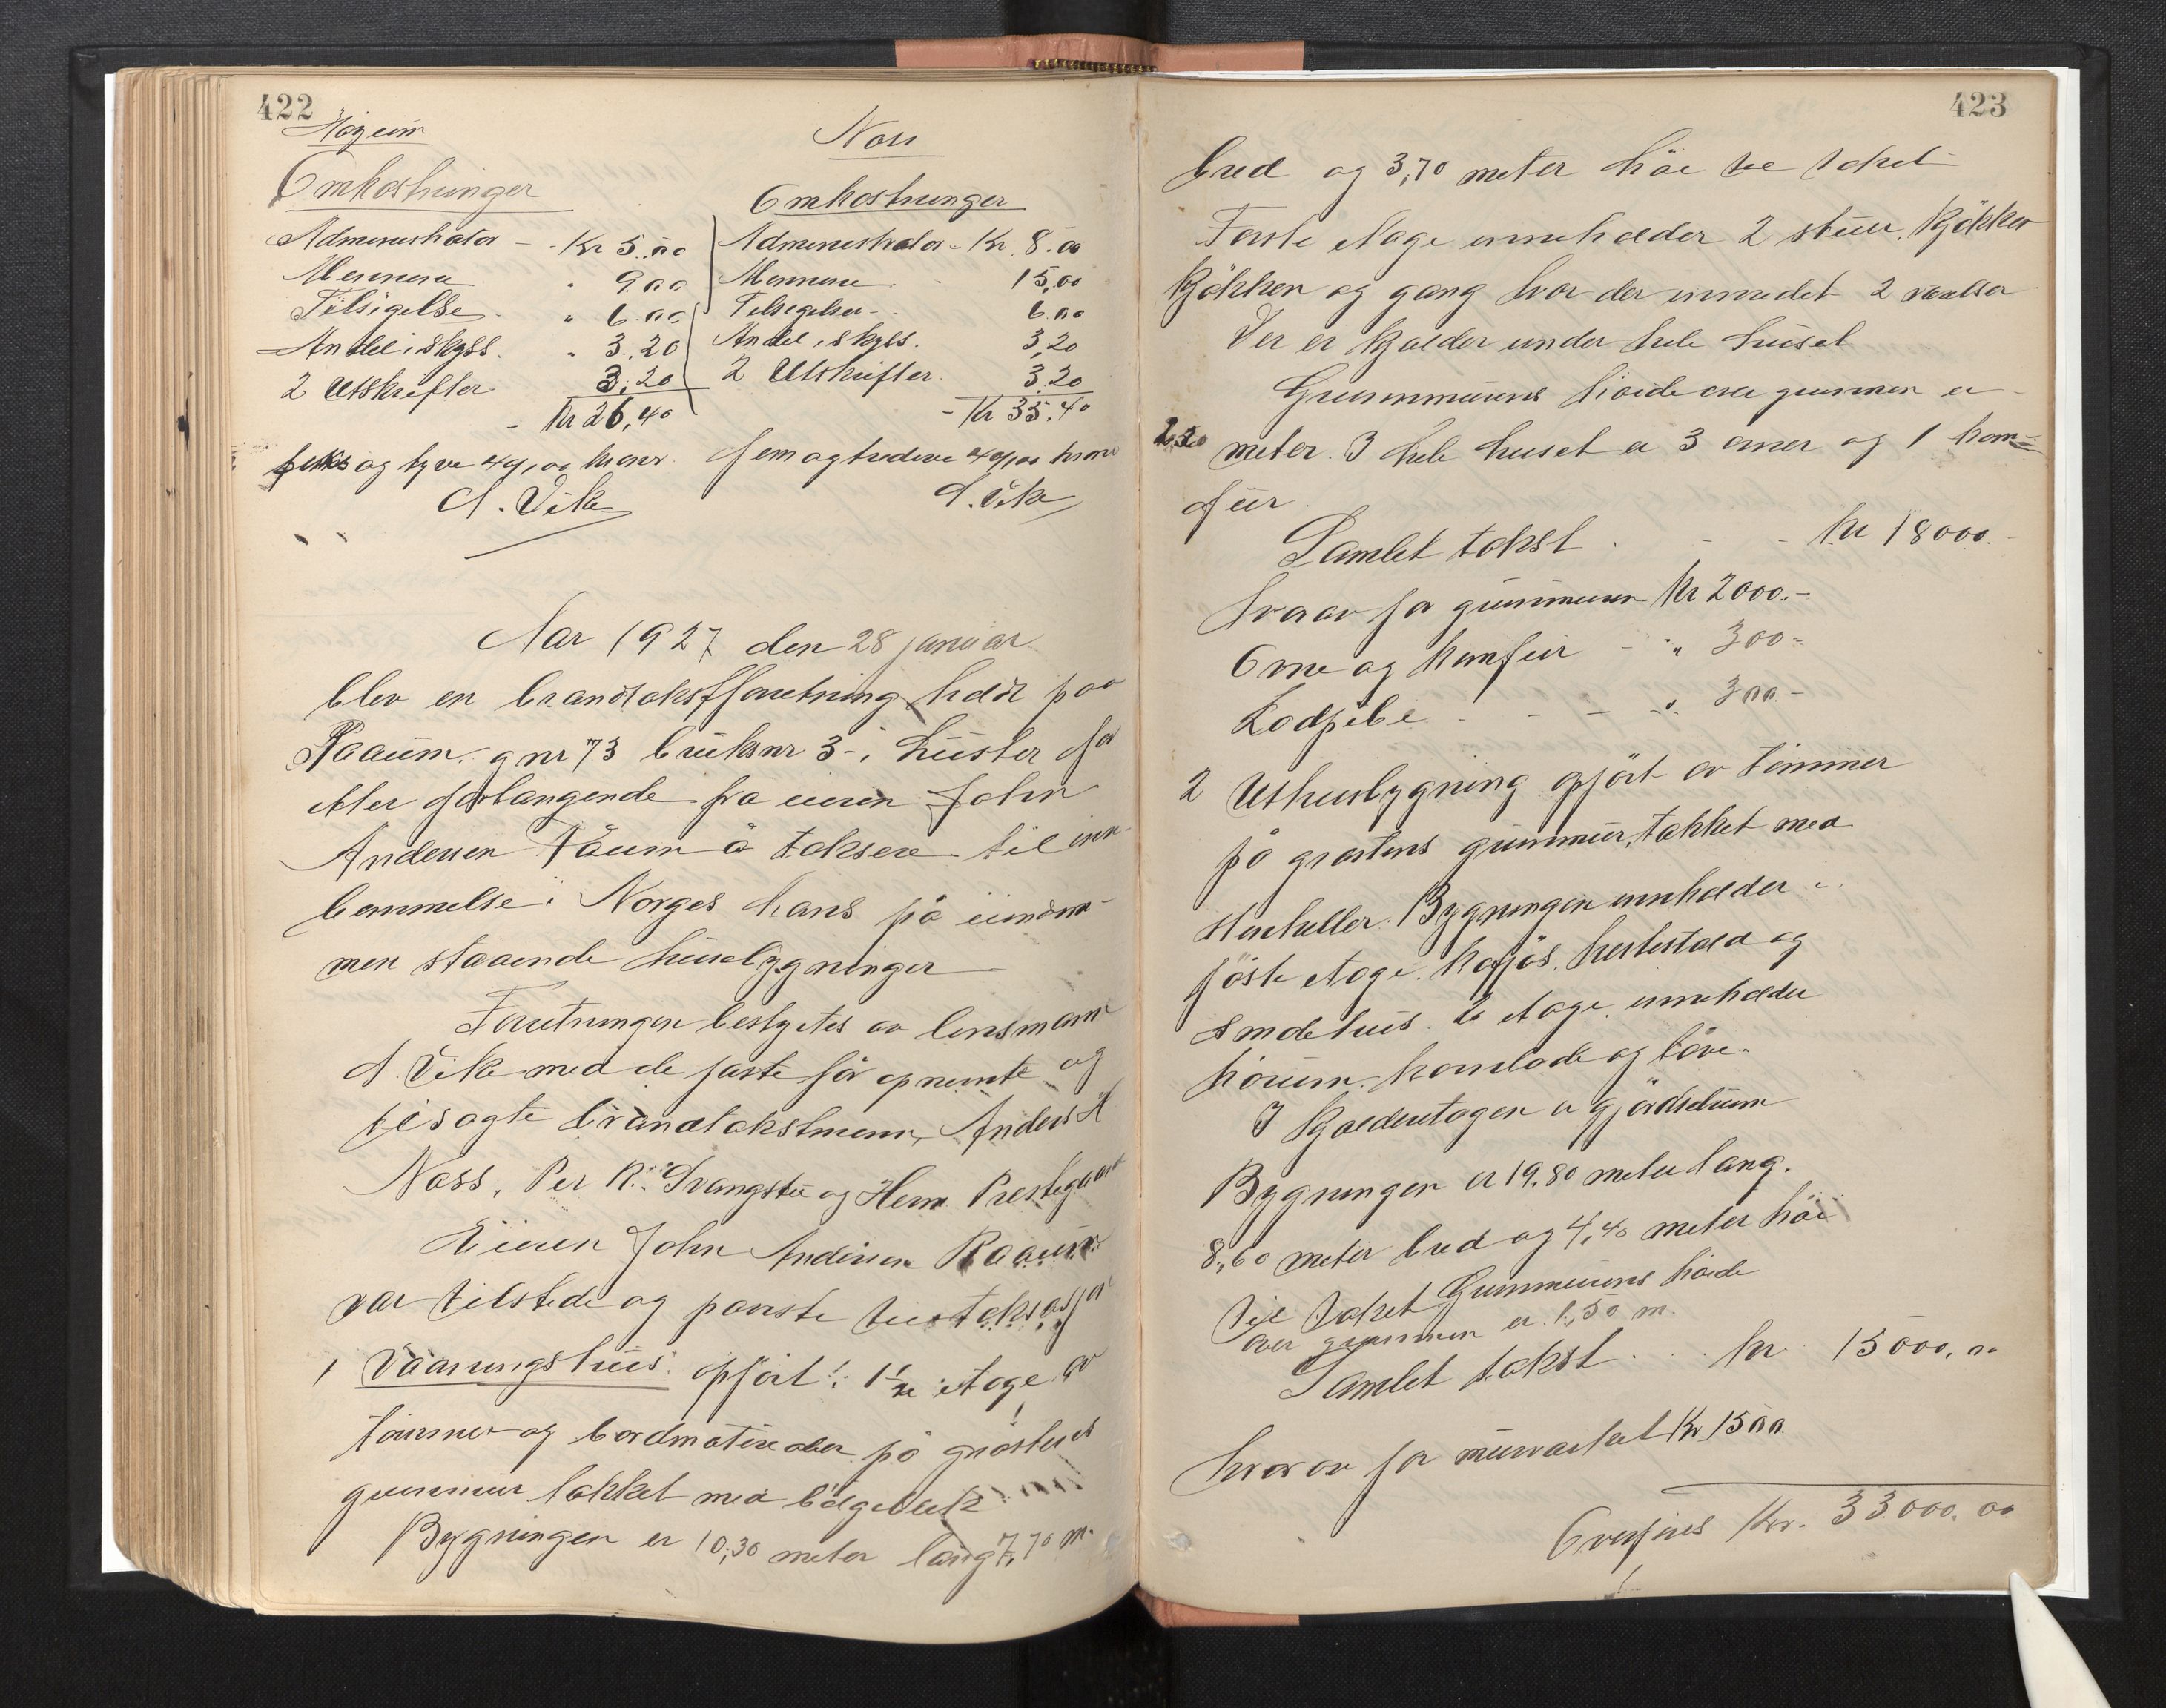 422
Høgeim
Omkostninger
Administrator - - Kr 5.00
Mennene " 9.00
Tilsigelse " 6.00
Andel i skyss. " 3.20
2 Utskrifter 3.20
- Kr 26,40
seks og tyve 40/100 kroner
A. Vike
Ness
Omkostninger
Administrator - Kr. 8.00
Mennene 15,00
Tilsigelser - 6.00
Andel i skyss. 3,20
2 Utskrifter 3.20
- Kr 35.40
fem og tredive 40/100 kroner
A. Vike
Aar 1927 den 28 januar
blev en brandtakstforretning holdt paa
Raaum gnr 73 bruksnr 3 - i Luster for
etter forlangende fra eieren John
Andersen Råum å taksere til inn-
lemmelse i Norges kasse på eiendom-
men staaende husebygninger
Forretningen bestyrtes av lensmann
A. Vike med de faste før opnemte og
tilsagte brandtakstmenn, Anders H
Ness, Per R. Svangstu og Herm Prestegaard
Eieren John Andersen Raaum
var tilstede og paaviste til taksasjon
1 Vaaningshus: opført i 1 1/2 etage av
tømmer og bordmaterialer på gråstens
grunnmur takket med bølgeblikk
Bygningen er 10,30 meter lang 7,70 m.
423
bred og 3,70 meter høi til taket
Første etage inneholder 2 stuer, kjøkken
kjøkken og gang hvor der innredet 2 værelser
Der er kjælder under hele huset
Grunnmurens høide over grunnen er
2,20 meter. I hele huset er 3 ovner og 1 kom-
fur
Samlet takst . - - kr 18000.-
hvorav for grunnmuren Kr 2000.-
Ovne og komfur - " 300-
Lodpibe - - - - " 300-
2 Uthusbygning opført av tømmer
på gråstens grunnmur, takket med
stenheller. Bygningen inneholder i
første etage. Kofjøs, hestestald og
smalehus. 2 etage inneholder
høirum. kornlade og låve.
I kjælderetagen er gjødselrum
Bygningen er 19,80 meter lang.
8,60 meter bred og 4,40 meter høi
til taket Grunnmurens høide
over grunnen er 1,50 m.
Samlet takst . . . kr 15000,00
hvorav for murværket Kr 1500
Overføres Kr. 33.000.00